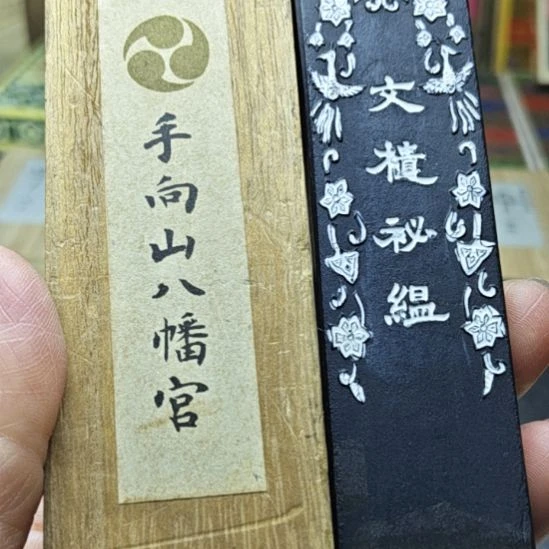 手向山八幡宮
文樻秘緼